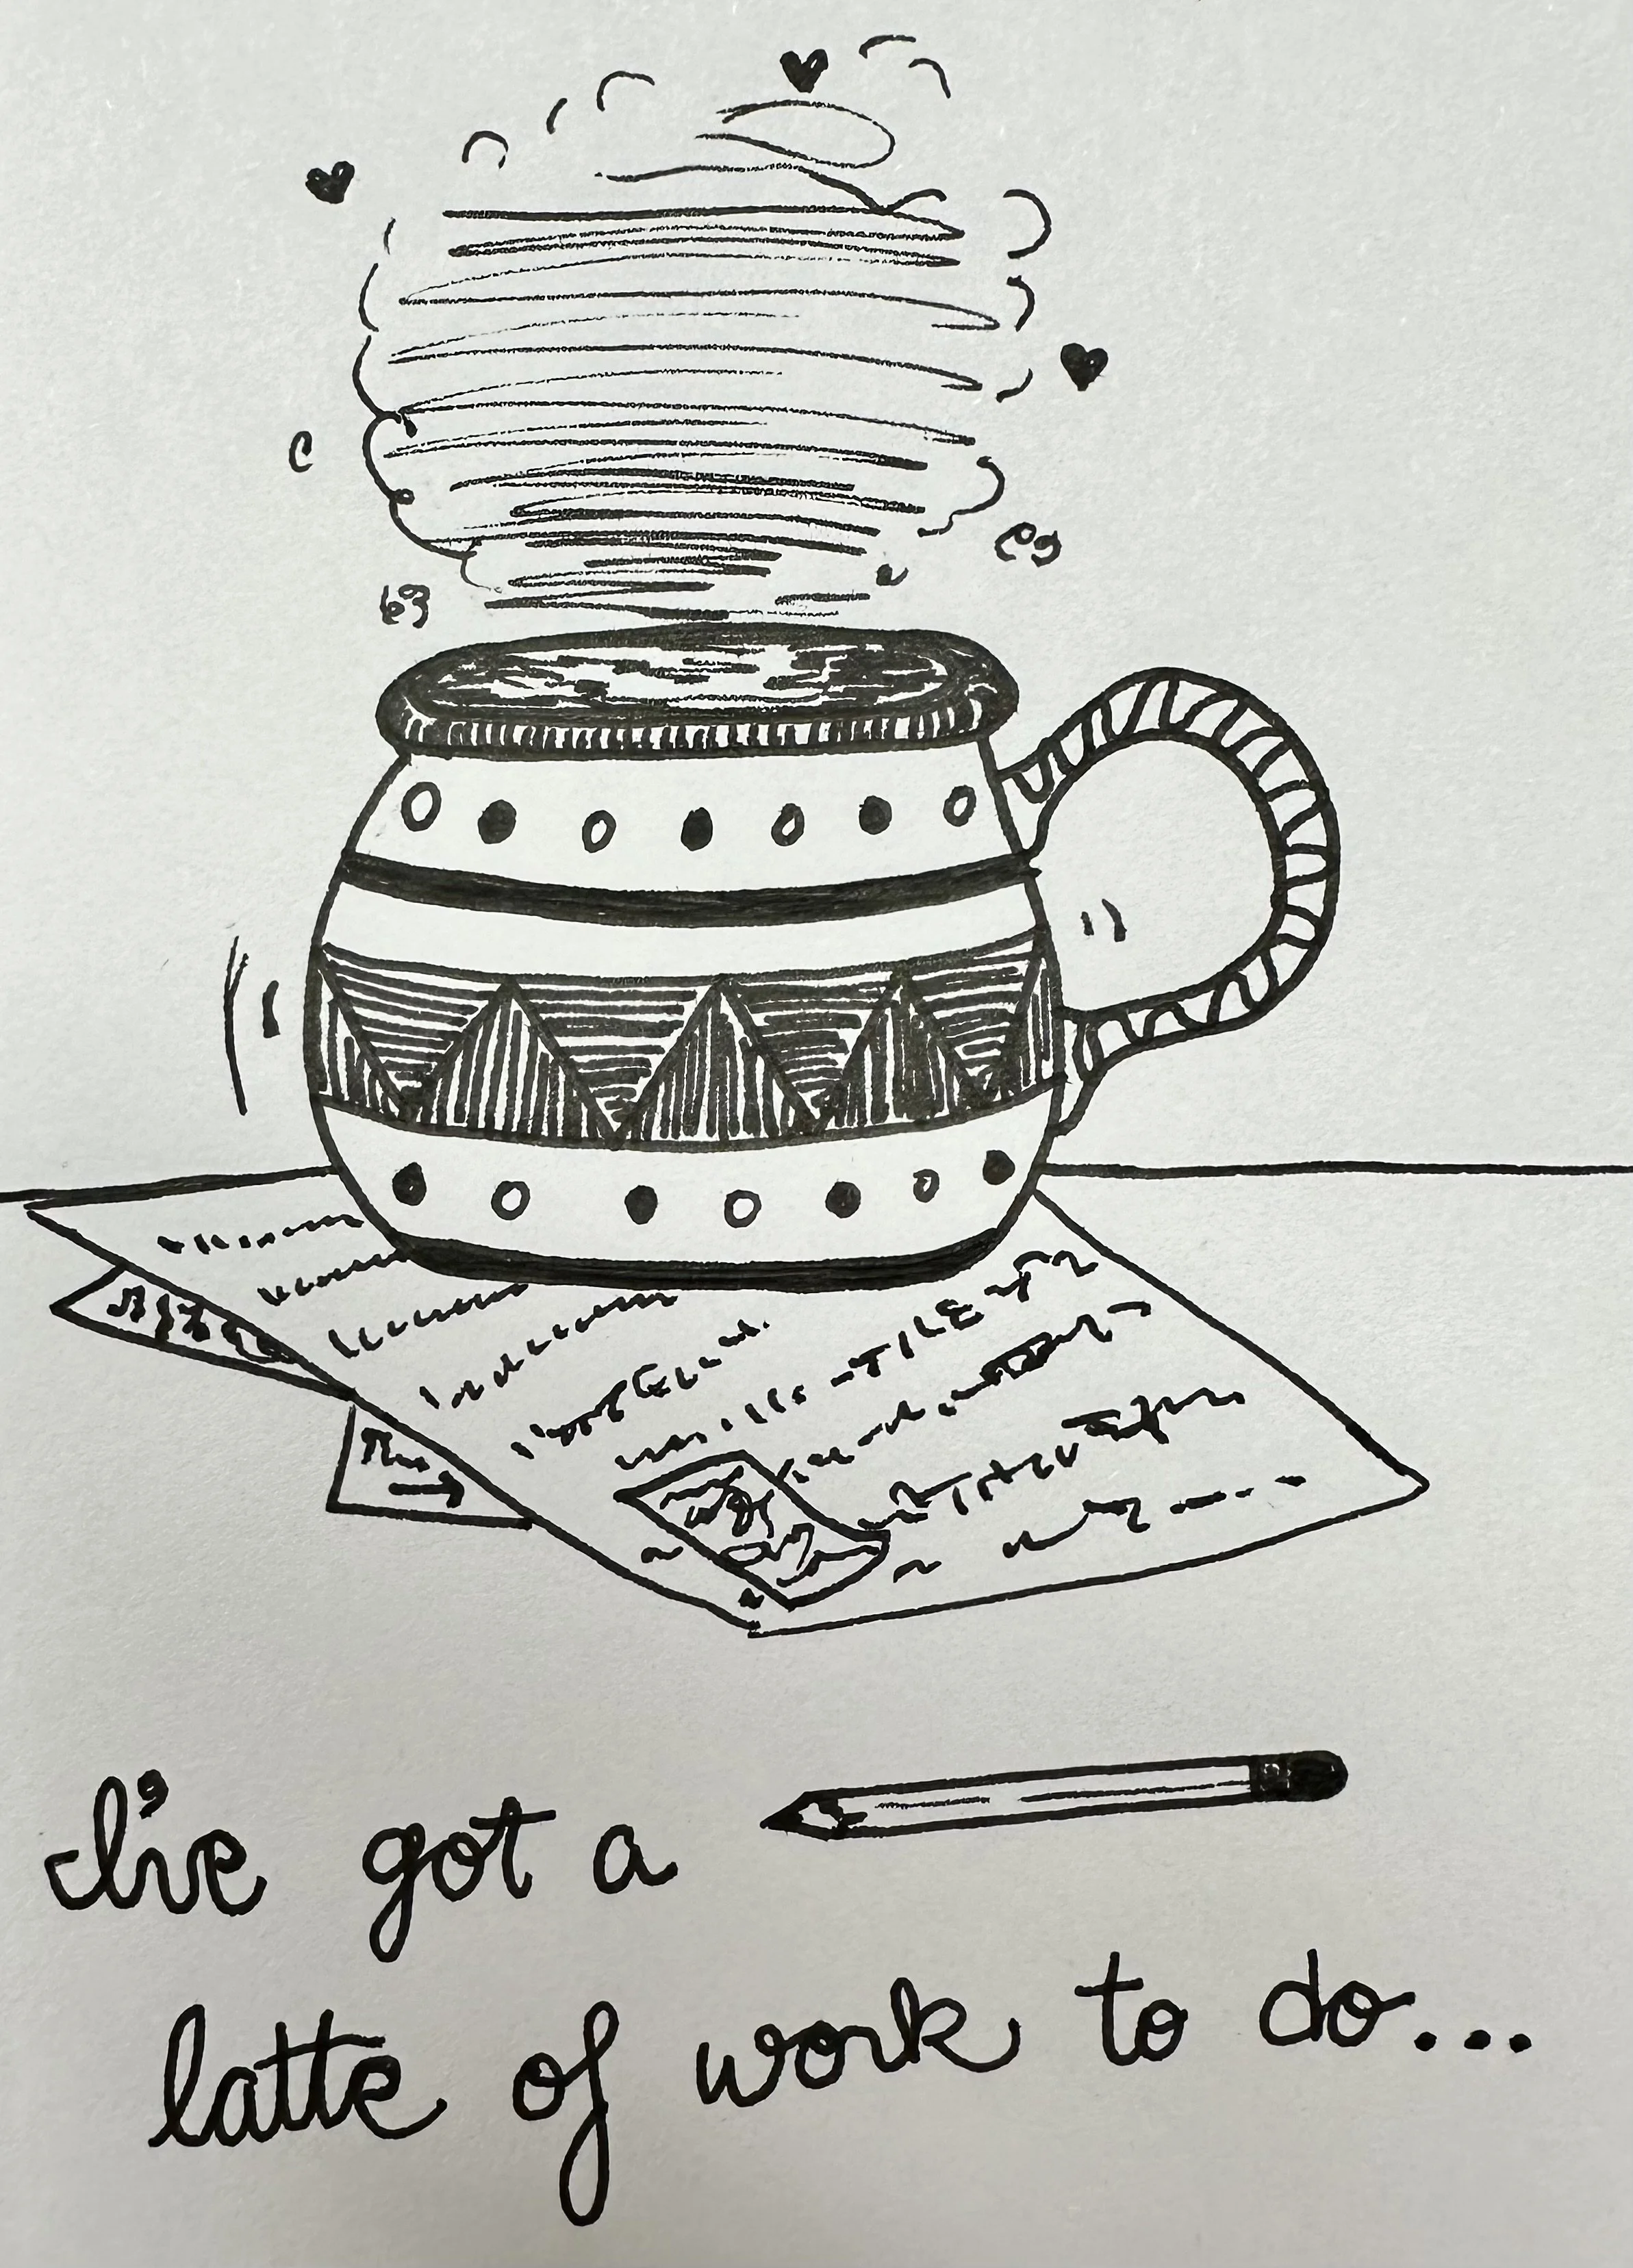 I've got a
latte of work to do...